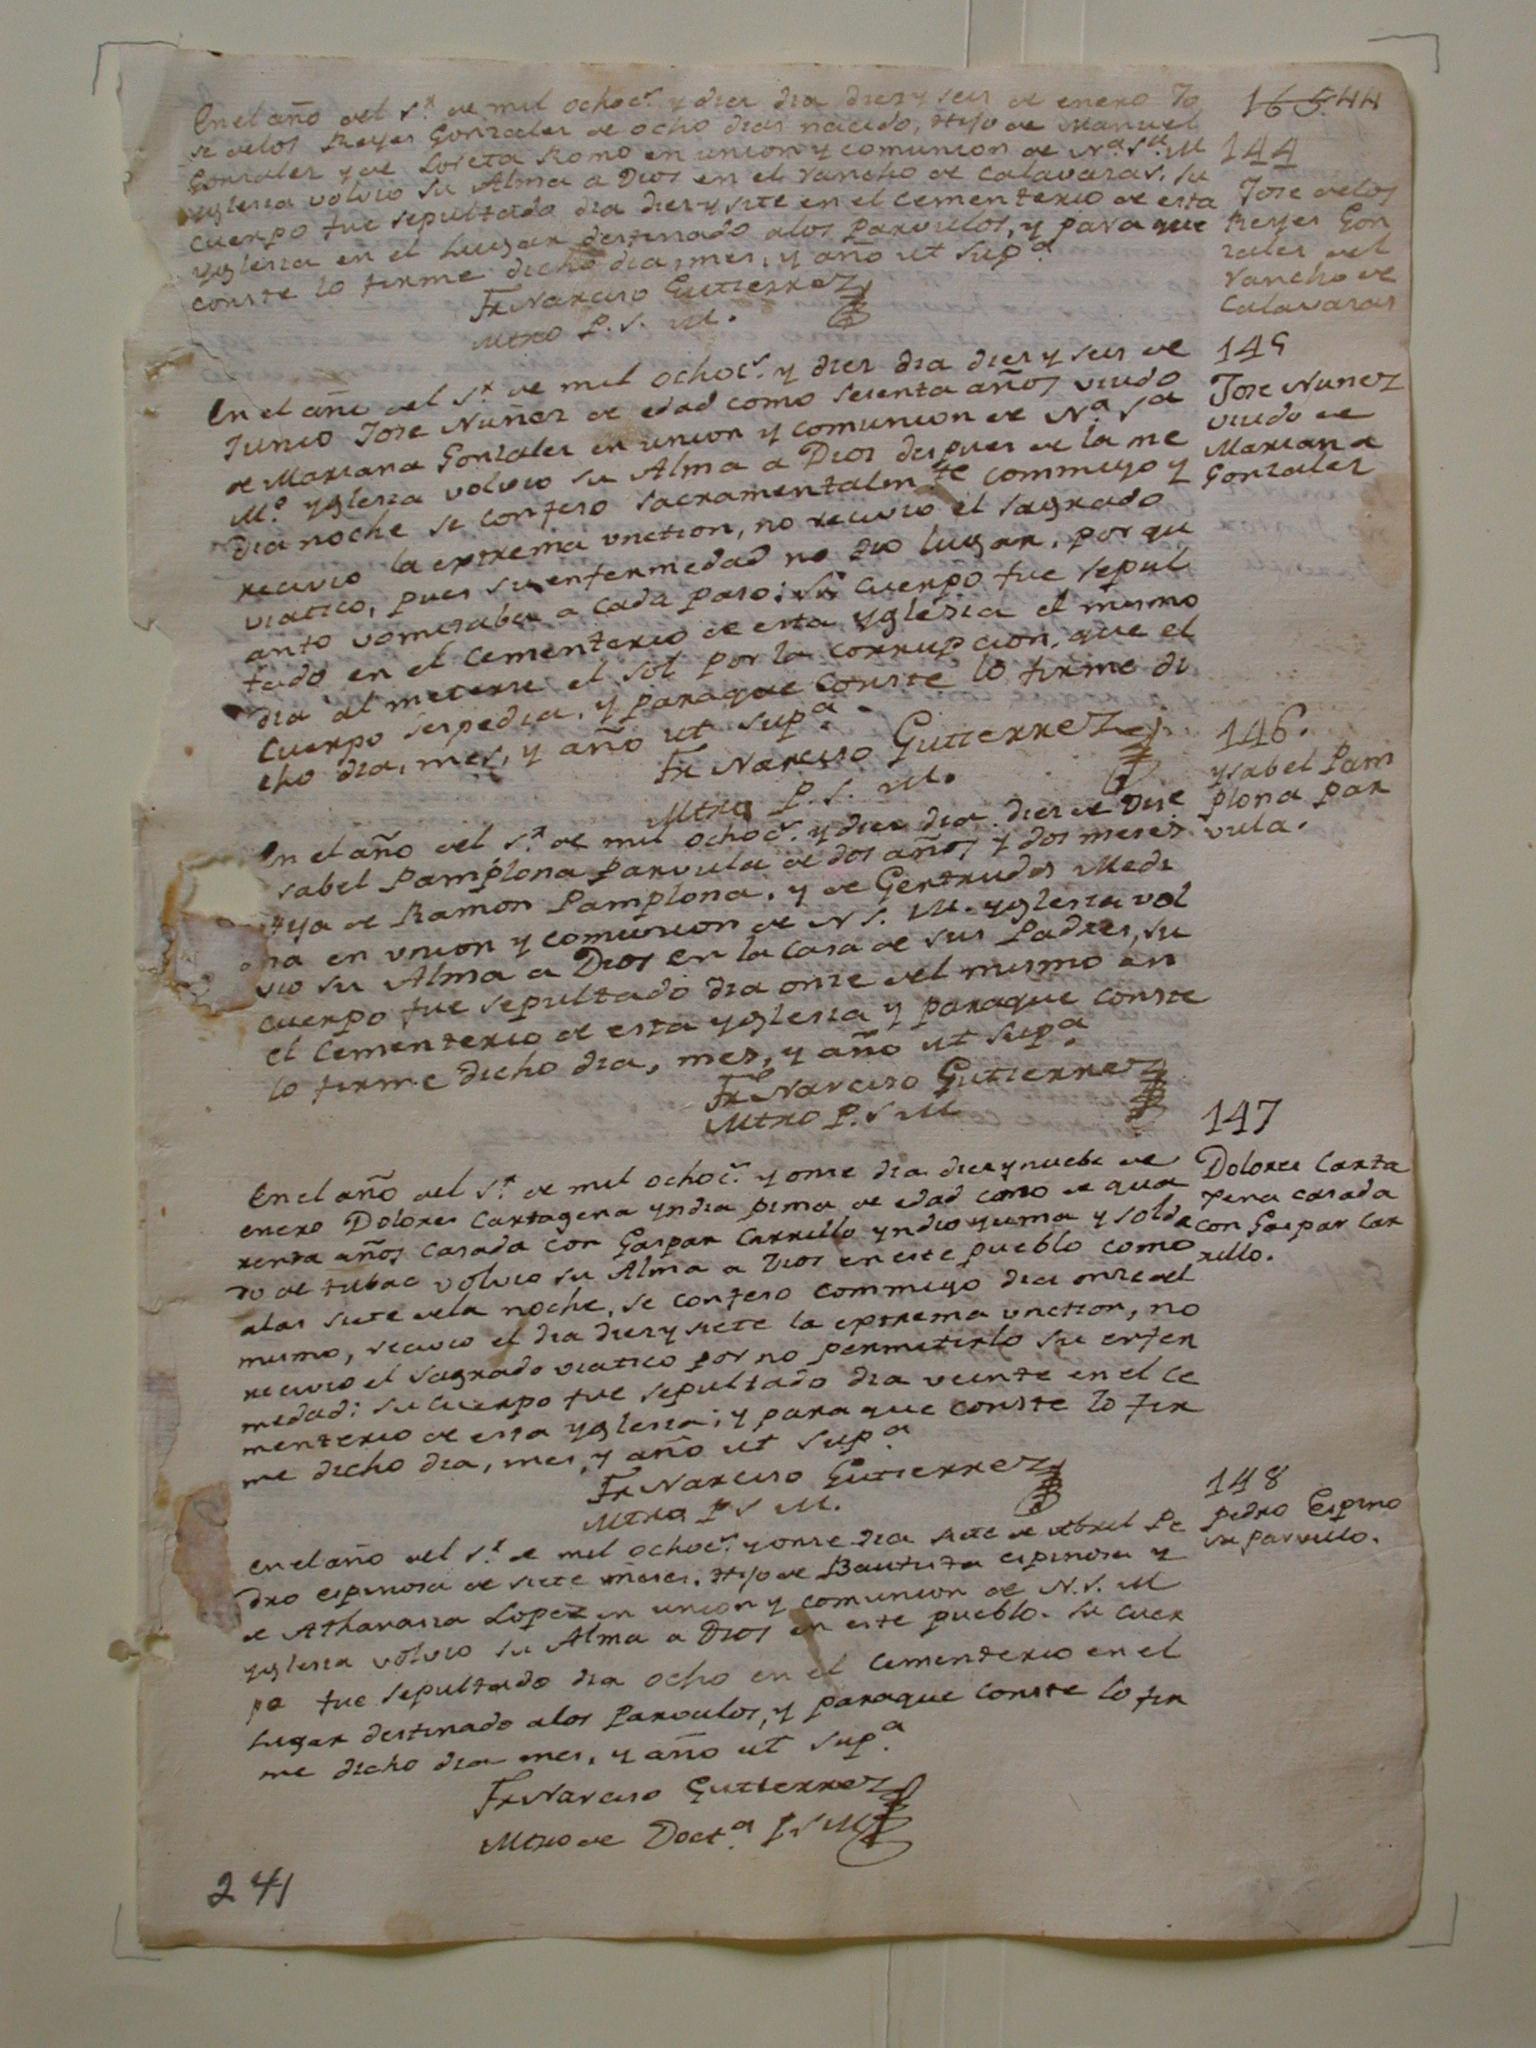 165 44
En el año del S.r de mil ochoc.s y diez dia diez y seis de enero Jo
se delos Reyes Gonzalez de ocho dias nacido, Hijo de Manuel
Gonzalez y de Loreta Romo en union y comunion de N.a S.a M
yglesia volvio su Alma a Dios en el rancho de Calavazas. su
cuerpo fue sepultado dia diez y siete en el cementerio de esta
yglesia en el Lugar destinado alos Parvulos, y para que
conste lo firme dicho dia, mes, y año ut sup.a
Fr Narciso Gutierrez
Mtro P. S. M.
144
Jose delos
Reyes Gon
zales del
rancho de
Calavazas
En el año del S.r de mil ochoc.s y diez dia diez y seis de
Junio Jose Nuñez de edad como sesenta años viudo
de Mariana Gonzalez en union y comunion de N.a S.a
M.e yglesia volvio su Alma a Dios despues de la me
dia noche se confeso sacramentalm.te commigo y
recivio la extrema unction, no recivio el sagrado
viatico, pues su enfermedad no dio lugar, por qu
anto vomitaba a cada paso; su cuerpo fue sepul
tado en el cementerio de esta yglesia el mismo
dia al meterse el sol por la corrupcion, que el
cuerpo despedia, y paraque conste lo firme di
cho dia, mes, y año ut sup.a
Fr Narciso Gutierrez
Mtro P. S. M.
145
Jose Nunez
viudo de
Mariana
Gonzalez
En el año del S.r de mil ochoc.s y diez dia diez de Dize
sabel Pamplona Parvula de dos años y dos meses
Hija de Ramon Pamplona, y de Gertrudes Medi
na en union y comunion de N S. M. yglesia vol
vio su Alma a Dios en la Casa de sus Padres, su
cuerpo fue sepultado dia onze del mismo en
el Cementerio de esta yglesia y paraque conste
lo firme dicho dia, mes, y año ut sup.a
Fr Narciso Gutierrez
Mtro P. S M
146.
ysabel Pam
plona par
vula.
En el año del S.r de mil ochoc.s y onse dia diez y nuebe de
enero Dolores Cartagena yndia pima de edad como de qua
renta años casada con Gaspar Carrillo yndio yuma y solda
do de tubac volvio su Alma a Dios en este pueblo como
alas siete dela noche, se confeso commigo dia onze del
mismo, recivio el dia diez y siete la extrema unction, no
recivio el sagrado viatico por no permitirlo su enfer
medad; su cuerpo fue sepultado dia veinte en el ce
menterio de esta yglesia; y para que conste lo fir
me dicho dia, mes, y año ut sup.a
Fr Narciso Gutierrez
Mtro P S M.
147
Dolores Carta
gena casada
con Gaspar Car
rillo.
En el año del S.r de mil ochoc.s y onse dia siete de Abril Pe
dro espinosa de siete meses, Hijo de Bautista espinosa y
de Athanasia Lopez en union y comunion de N. S. M
yglesia volvio su Alma a Dios en este pueblo. su cuer
po fue sepultado dia ocho en el Cementerio en el
Lugar destinado alos Parvulos, y paraque conste lo fir
me dicho dia mes, y año ut sup.a
Fr Narciso Gutierrez
Mtro de Doct.a P S M
148
Pedro Espino
sa parvulo.
241